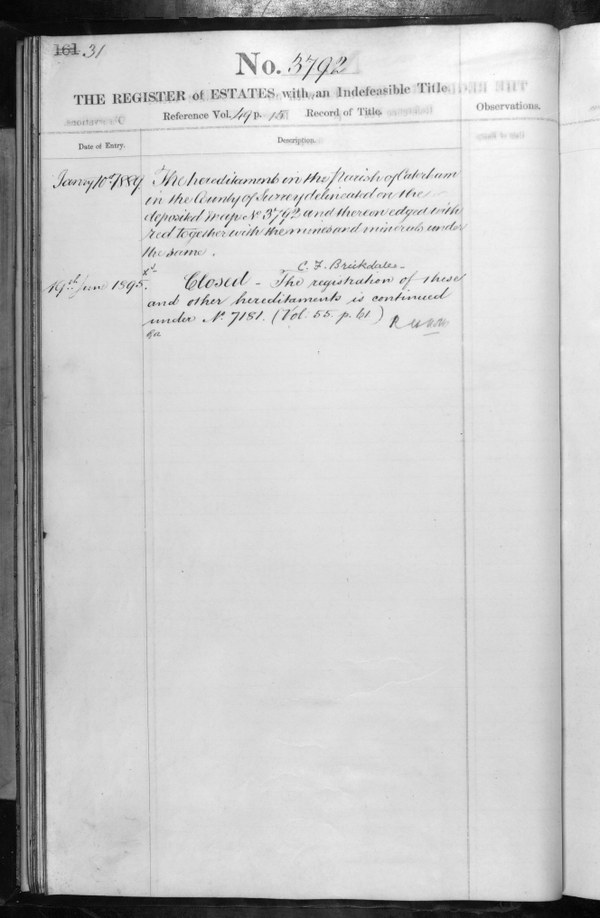 161 31
No. 3792
THE REGISTER of ESTATES with an Indefeasible Title.
Reference Vol. 49 p. 15 Record of Title.
Observations.
Date of Entry.
Description.
Janry 10th 1889 The hereditaments in the Parish of Caterham
in the County of Surrey delineated on the
deposited Map No 3792 and thereon edged with
red together with the mines and minerals under
the same.
C. F. Brickdale
19th June 1895. Closed – The registration of these
and other hereditaments is continued
under No. 7181. (Vol. 55. p. 61)